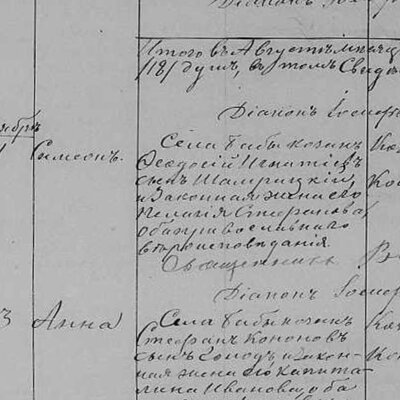 Діаконъ Іосиф
Итого въ Августѣ мѣсяц
(18) душъ, въ томъ
Діаконъ Іосиф
ября
Симеонъ.
Села Бабы козакъ
Ѳеодосій Игнатіевъ
сынъ Шамрицкій,
и законная жена его
Пелагія Стефанова
оба православнаго
вѣроисповѣданія.
Священникъ
Діаконъ Іосиф
3 Анна
Села Бабы козакъ
Стефанъ Кононовъ
сынъ Голодъ, и закон-
ная жена его Капито-
лина Иванова, оба